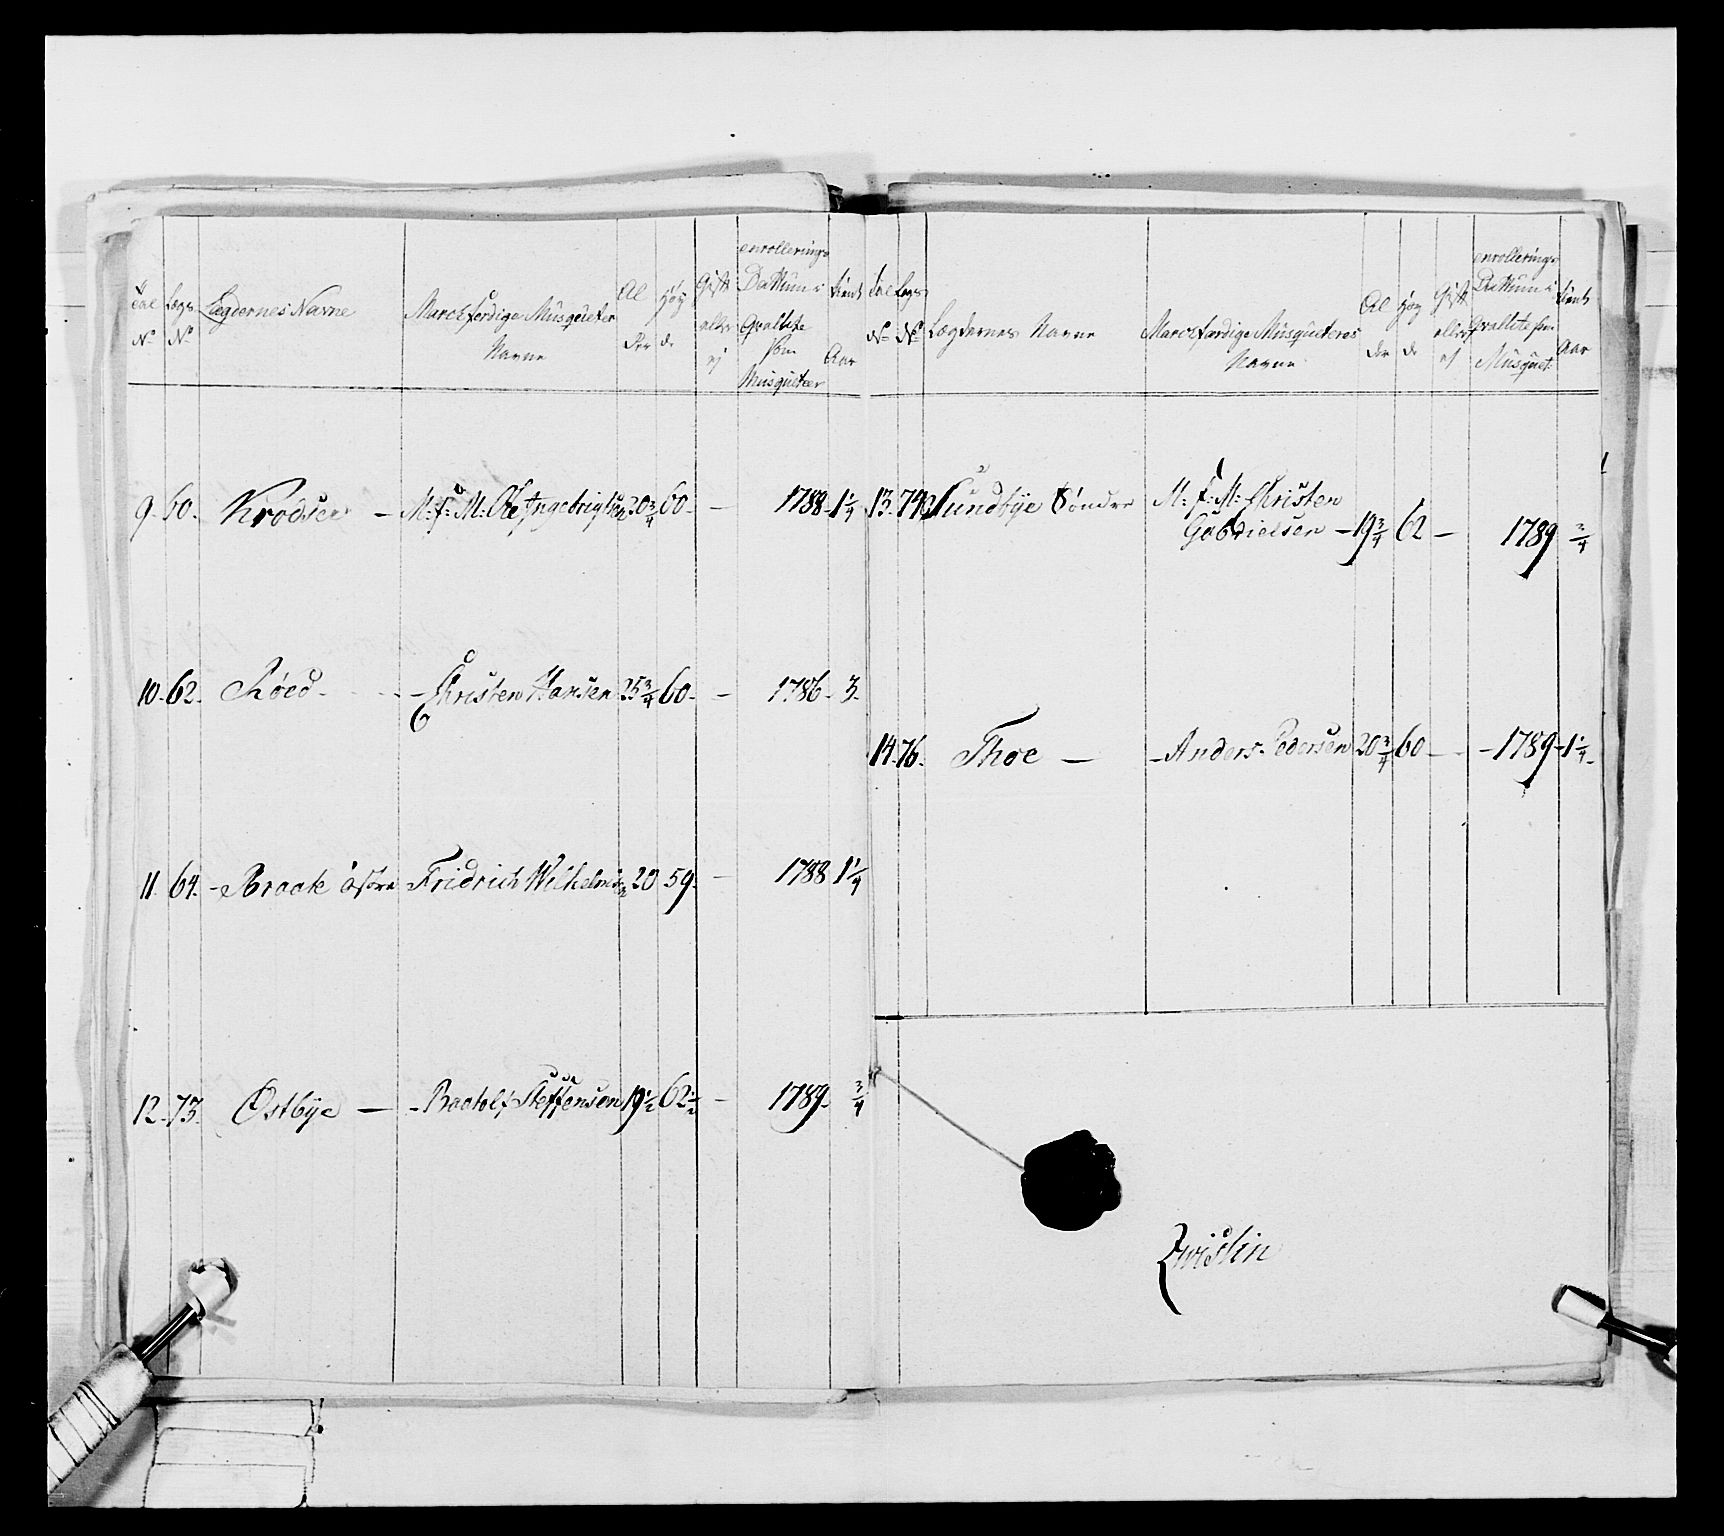 Tal No Lægs No Lægdernes Navne Marchferdige Musqueterers Navne Alder Høyde Gift eller ej enrollerings Dattum i Qvalitete som Musqueteer tient Aar
9. 60. Krodser — M: f: M: Ole Ingebrigtsen 20 3/4 60. — 1788 - 1 1/4
10. 62. Røed - - - Christen Hansen 25 3/4 60. — 1786 - 3.
11. 64. - Braate östre Fridrich Wilhelmsen 20 59. — 1788 1 1/4
12. 73. Ostbÿe — - Steffensen 19 1/2 62 1/2 — 1789. 3/4
Tal No Lægs No Lægdernes Navne Marchfærdige Musqueteres Navne Alder Høyde Gift eller ej enrollerings Dattum i Qvalitete som Musquet: tient Aar
13. 74 Sundbÿe Søndre M: f: M: Christen
Gabrielsen — 19 3/4 62 — 1789 3/4
14. 76. Thoe — - Anders Pedersen 20 3/4 60 — - 1789 - 1 1/4